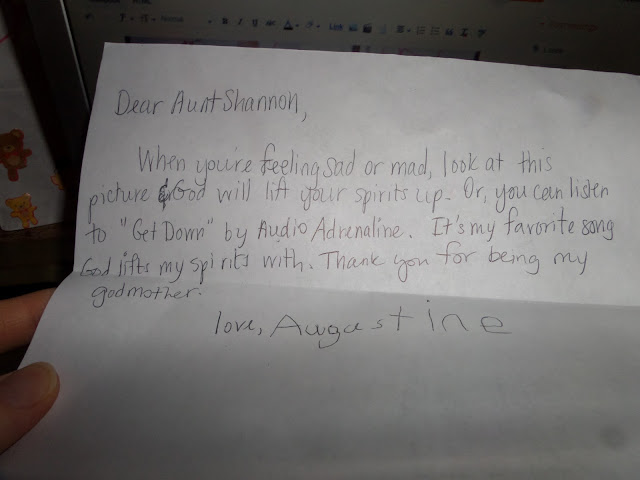 Dear Aunt Shannon,
When you're feeling sad or mad, look at this
picture & God will lift your spirits up. Or, you can listen
to "Get Down" by Audio Adrenaline. It's my favorite song
God lifts my spirits with. Thank you for being my
godmother.
love, Augastine